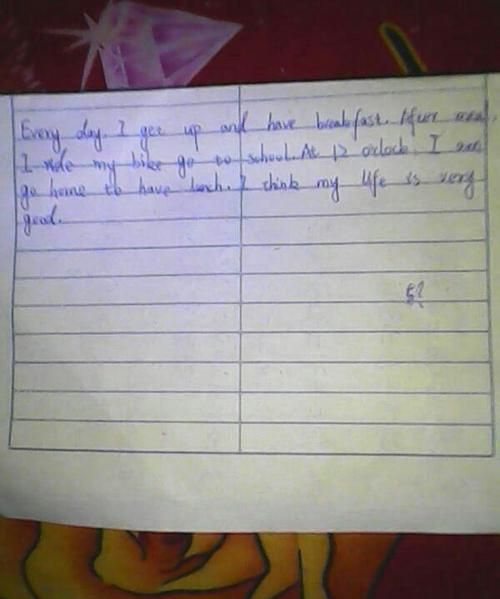 Every day. I get up and have breakfast. After
I ride my bike go to school. At 12 o'clock. I am
go home to have lunch. I think my life is very
good.